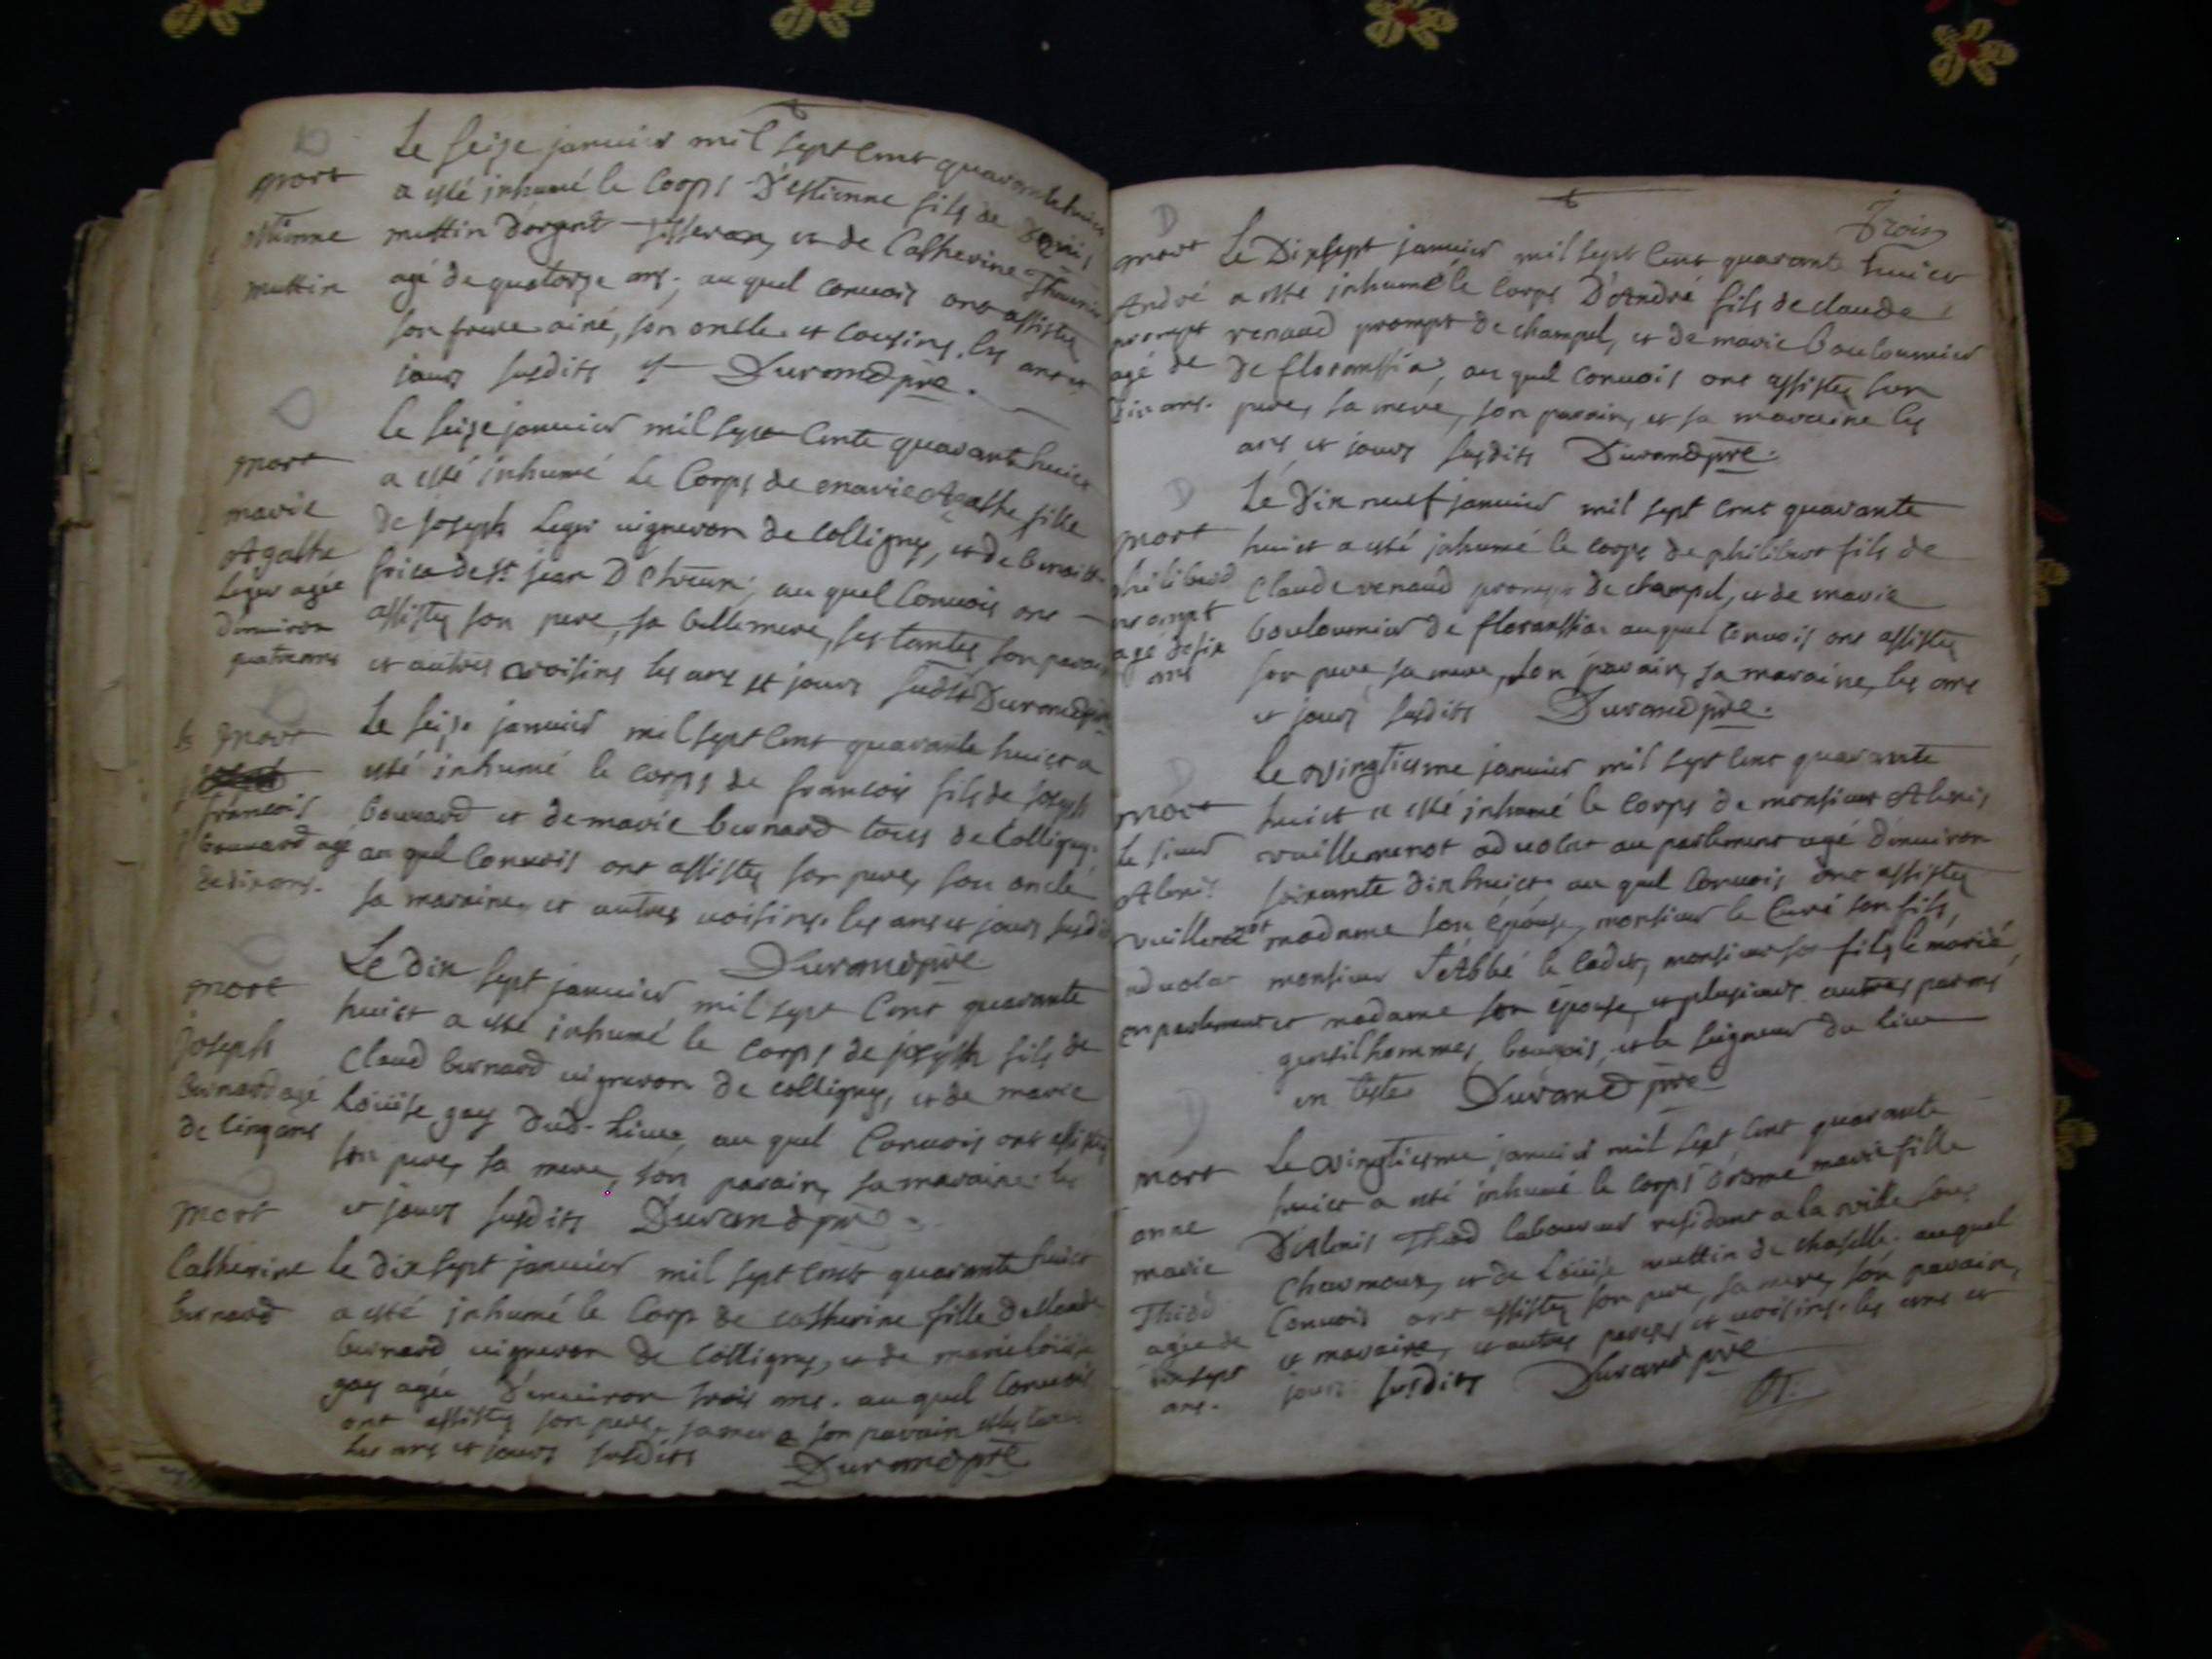 mort
estienne
muttin
Le seize janvier mil sept cent quarante huict
a esté inhumé le corps D'estienne fils de Denis
muttin Dorgent tisseran, et de Catherine Thouvrier
agé de quatorze ans; au quel convois ont assistez
son frere ainé, son oncle et cousins. les ans et
jours susdits Durand pre.
mort
marie
Agathe
leger agée
d'environ
quatre ans
Le seize janvier mil sept cente quarante huict
a esté inhumé le Corps de marie Agathe fille
de joseph leger vigneron de colligny, et de benoiste
frica de st jean D'Etreux; au quel Convois ont
assistez son pere, sa bellemere, ses tantes son parain
et autres voisins les ans et jours susdits Durand pre
mort
francois
bouuard agé
de dix ans.
Le seize janvier mil sept cent quarante huict a
esté inhumé le corps de francois fils de joseph
bouuard et de marie bernard tous de colligny.
au quel convois ont assistez son pere, son oncle
sa maraine, et autres voisins. les ans et jours susdits
Durand pre
mort
joseph
bernard agé
de cinq ans
Le dix sept janvier mil sept Cent quarante
huict a esté inhumé le corps de joseph fils de
Claud bernard vigneron de colligny, et de marie
Loüise gay dud. lieu, au quel Convois ont assistez
son pere, sa mere, son parain, sa maraine. les
et jours susdits Durand pre.
mort
Catherine
bernard
le dix sept janvier mil sept cent quarante huict
a esté inhumé le Corp de catherine fille de Claude
bernard vigneron de Colligny, et de marie loüise
gay agée D'environ trois ans. au quel convois
ont assistez son pere, sa mere son parain
Les ans et jours susdits Durand pre
Trois
mort
André
prompt
agé de
dix ans.
Le Dixsept janvier mil sept Cent quarante huict
a esté inhumé le Corps D'André fils de claude
renaud prompt de champel, et de marie bouloumier
de floranssia, au quel Convois ont assistez son
pere, sa mere, son parain, et sa maraine les
ans et jours susdits Durand pre.
mort
philiberd
prompt
agé de six
ans
Le Dix neuf janvier mil sept cent quarante
huict a esté inhumé le corps de philibert fils de
Claude renaud prompt de champel, et de marie
bouloumier de floranssia. au quel Convois ont assistez
son pere sa mere, son parain, sa maraine, les ans
et jours susdits Durand pre.
mort
Le sieur
Alexis
vuillemenot
advocat
en parlement
Le vingtiesme janvier mil sept cent quarante
huict a esté inhumé le Corps de monsieur Alexis
vuillemenot advocat au parlement agé d'environ
soixante dix huict. au quel Convois ont assistez
madame son épouse, monsieur le Curé son fils,
monsieur l'Abbé le cadet, monsieur son fils le marié,
et madame son épouse, et plusieurs autres parens
gentilhommes, bourois, et le seigneur du lieu
en teste Durand pre
mort
anne
marie
Thiod
agée de
dixsept
ans.
Le vingtiesme janvier mil sept cent quarante
huict a esté inhumé le corps d'anne marie fille
D'Alexis Thiod laboureur residant a la ville sous
Charmoux, et de Loüise muttin de chaselle. au quel
Convois ont assistez son pere, sa mere, son parain,
et maraine, et autres parens et voisins. les ans et
jours susdits Durand pre